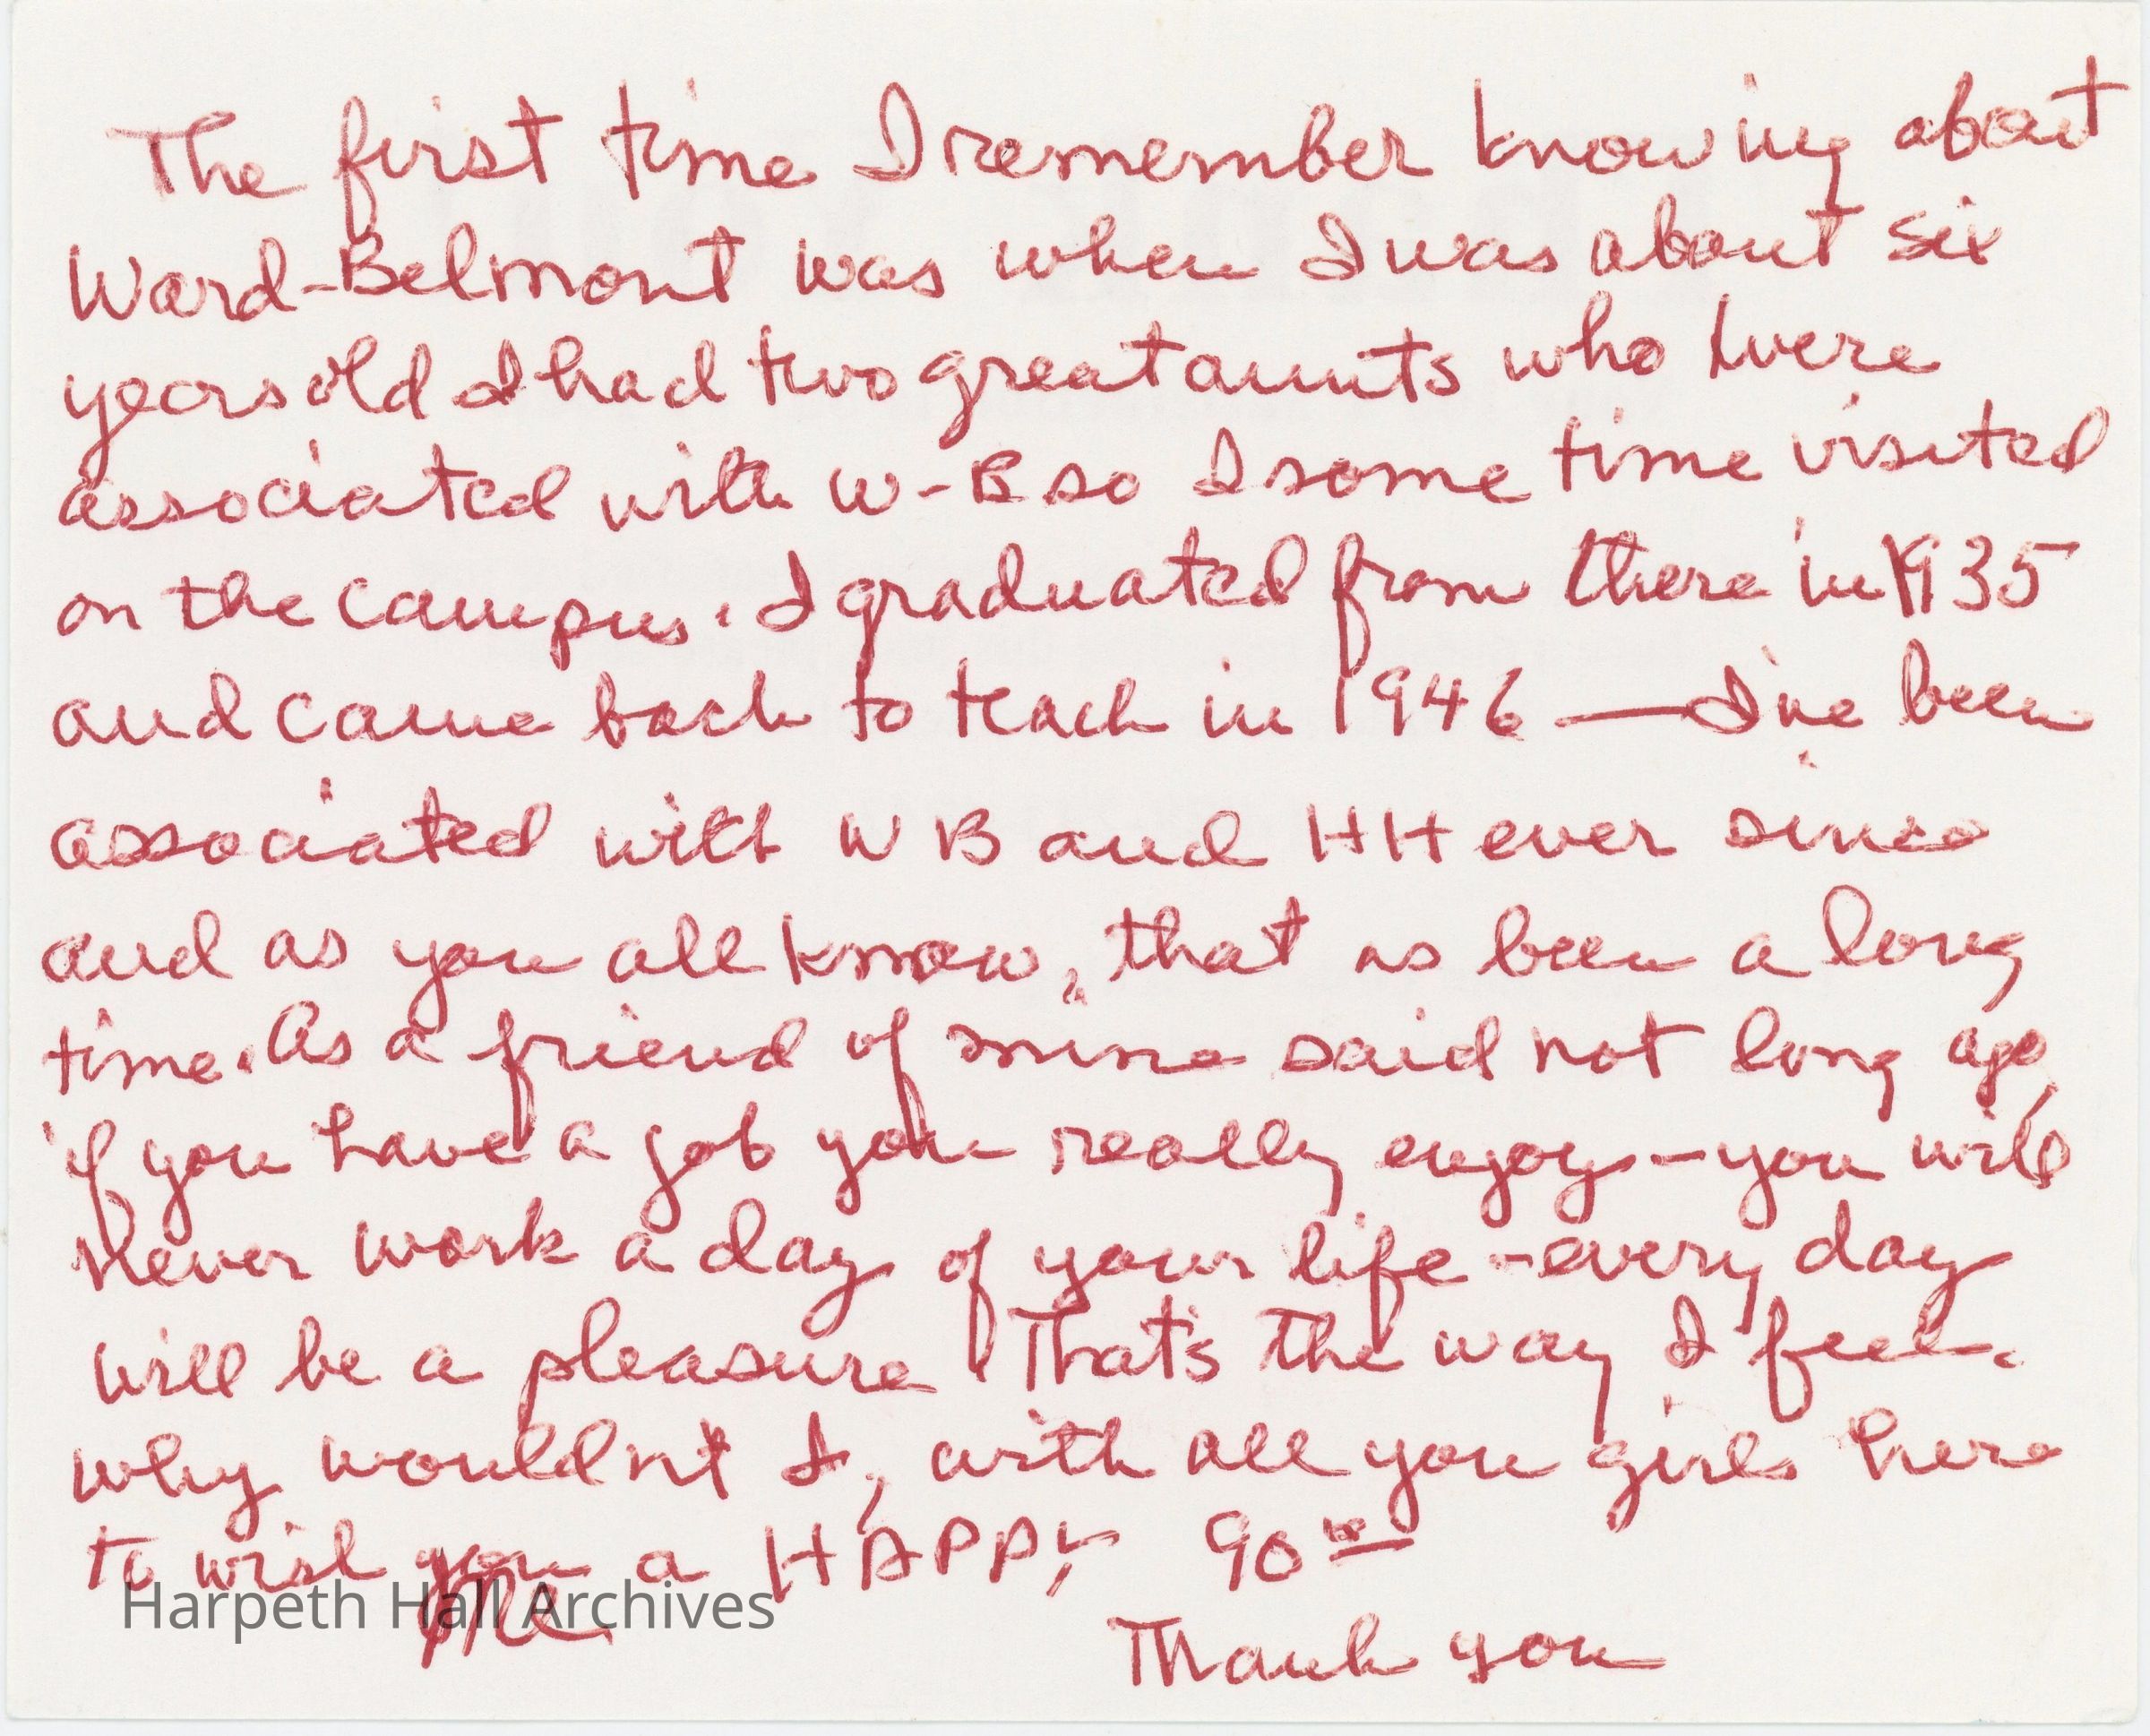 The first time I remember knowing about
Ward-Belmont was when I was about six
years old I had two great aunts who were
associated with W-B so I some time visited
on the campus. I graduated from there in 1935
and came back to teach in 1946 — I've been
associated with WB and HH ever since
and as you all know, that as been a long
time. As a friend of mine said not long ago,
if you have a job you really enjoy - you will
never work a day of your life - every day
will be a pleasure! That's the way I feel.
why wouldn't I, with all you girls here
to wish you a HAPPY 90th
me
Thank you
Harpeth Hall Archives